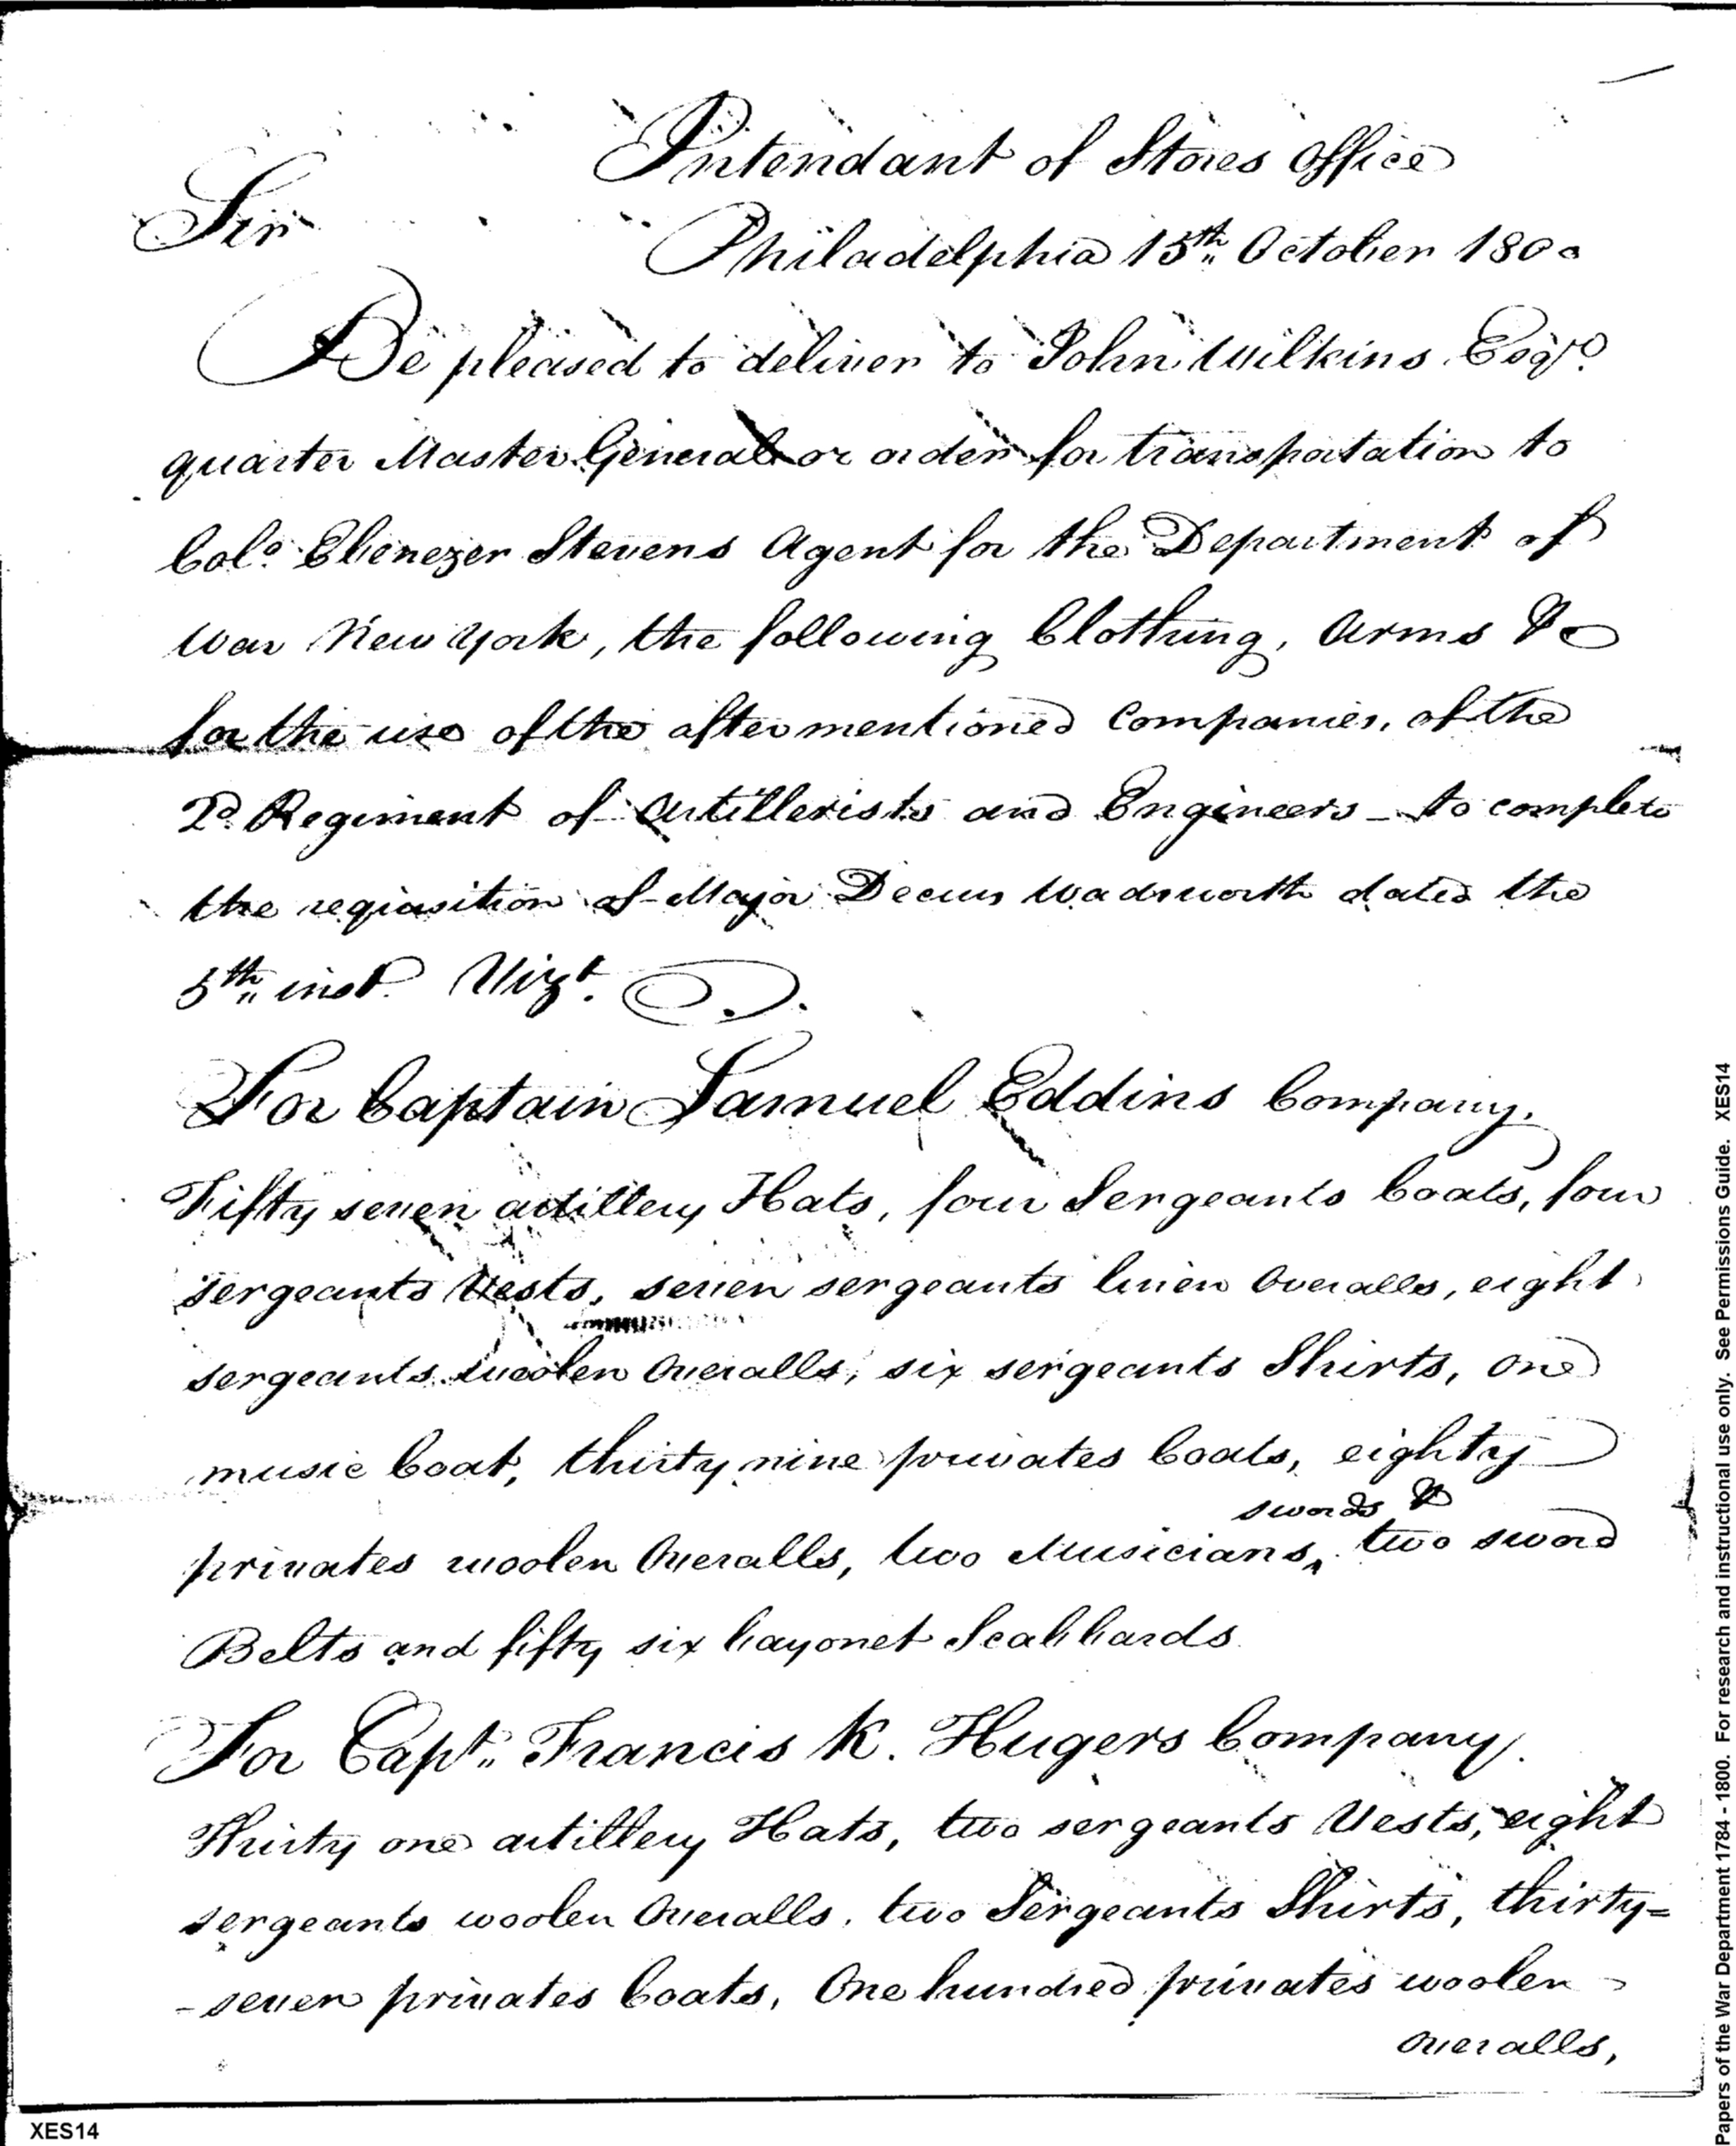 Intendant of Stores Office
Sir
Philadelphia 15th October 1800
Be pleased to deliver to John Wilkins Esqr.
quarter Master General or order for transportation to
Colo. Ebenezer Stevens Agent for the Department of
War New York, the following Clothing, Arms &c
for the use of the after mentioned Companies, of the
2d. Regiment of Artillerists and Engineers - to complete
the requisition of Major Decius Wadsworth dated the
5th inst. Vizt.
For Captain Samuel Eddins Company.
Fifty seven artillery Hats, four Sergeants Coats, four
sergeants Vests, seven sergeants linen Overalls, eight
sergeants woolen Overalls, six sergeants Shirts, one
music Coat, thirty nine privates Coats, eighty
swords &
privates woolen Overalls, two Musicians, two sword
Belts and fifty six bayonet Scabbards.
For Capt. Francis K. Hugers Company.
Thirty one artillery Hats, two sergeants Vests, eight
sergeants woolen Overalls, two Sergeants Shirts, thirty=
-seven privates Coats, One hundred privates woolen
overalls,
XES14
Papers of the War Department 1784 - 1800. For research and instructional use only. See Permissions Guide. XES14